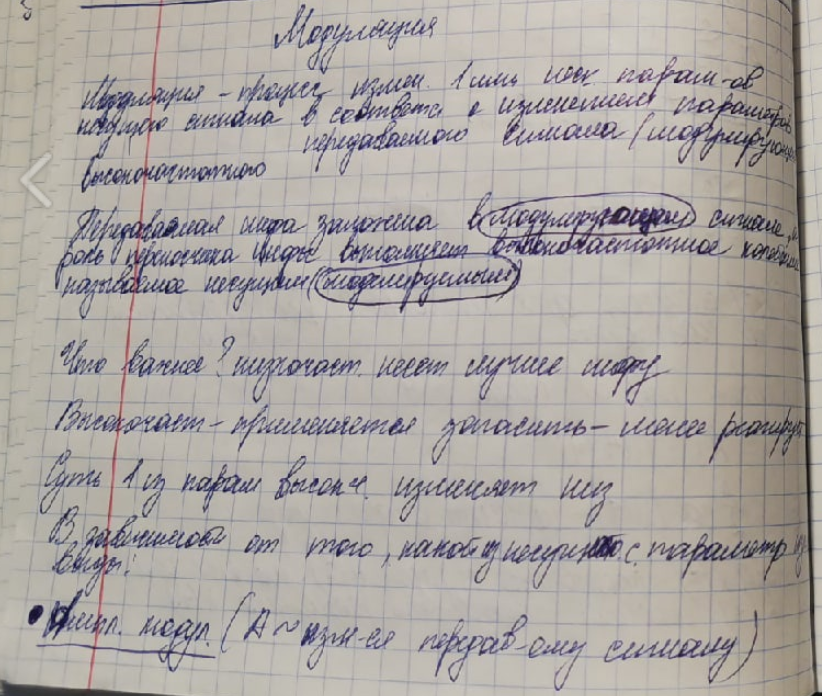 Модуляция
Модуляция - процесс измен. 1 или неск. парам-ов
несущего сигнала в соответс с изменением параметров
передаваемого сигнала (модулирующ
высокочастотного
Передаваемая инфа заложена в модулирующем сигнале, а
роль переносчика инфы выполняет высокочастотное колебание
называемое несущим (модулируемый)
Что важнее? низкочаст. несет лучше инфу
Высокочаст - применяется - менее
Суть 1 из парам высокч. изменяет низ
В зависимости от того, какой из несущ с. параметр из
виды:
• Ампл. модул. (A ~ изм-ся передав-ому сигналу)